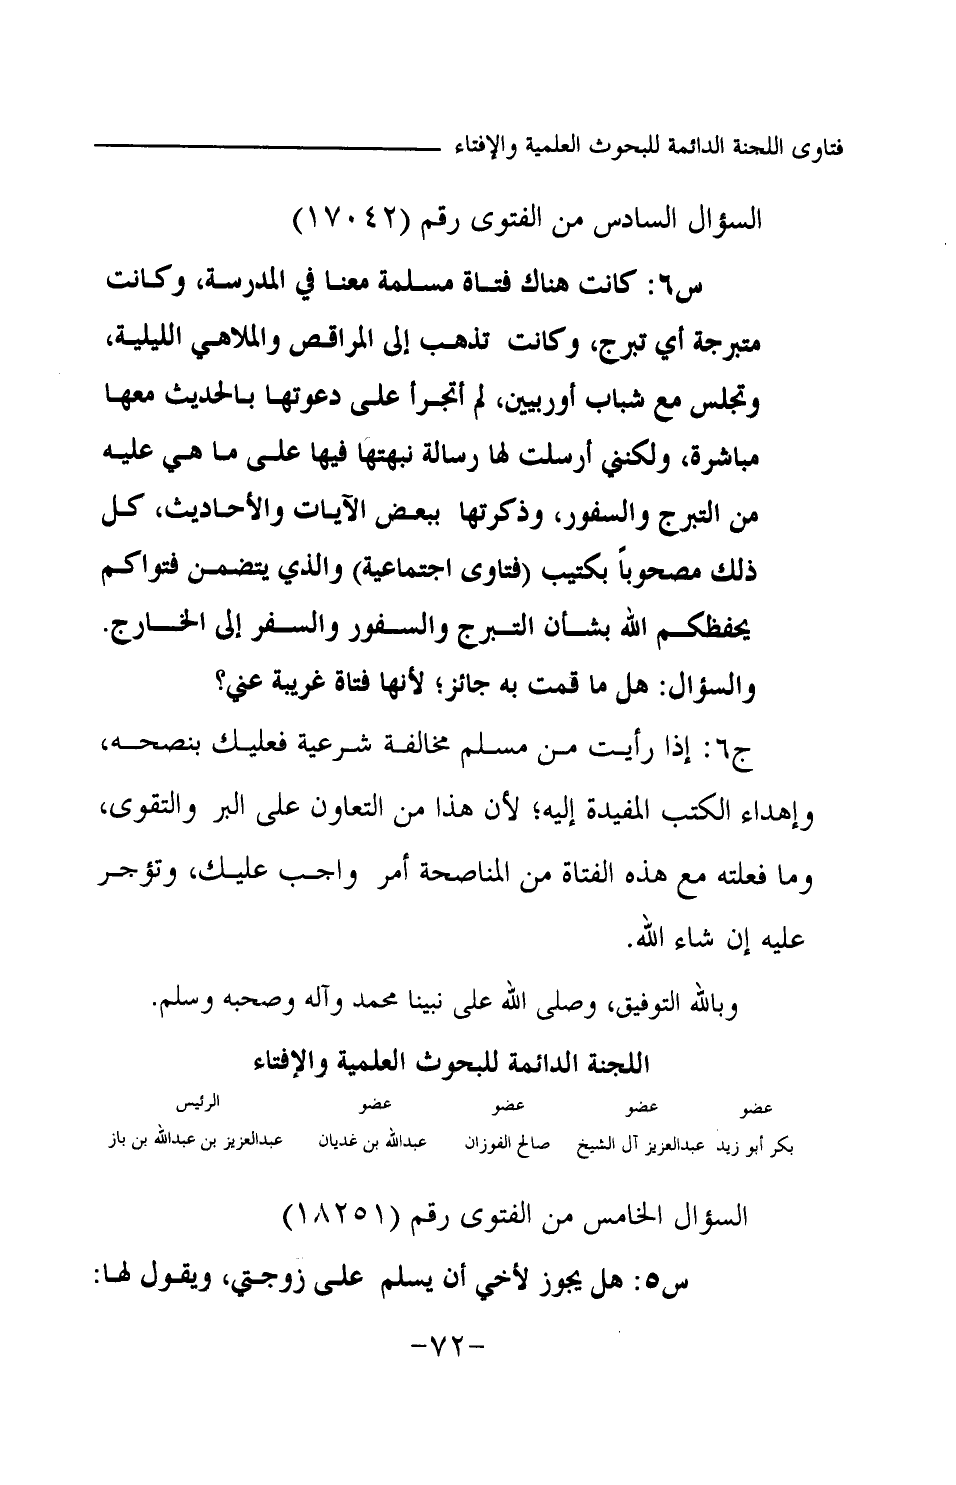 فتاوى اللجنة الدائمة للبحوث العلمية والإفتاء
السؤال السادس من الفتوى رقم (١٧٠٤٢)
س٦: كانت هناك فتاة مسلمة معنا في المدرسة، وكانت
متبرجة أي تبرج، وكانت تذهب إلى المراقص والملاهي الليلية،
وتجلس مع شباب أوربيين، لم أتجرأ على دعوتها بالحديث معها
مباشرة، ولكنني أرسلت لها رسالة نبهتها فيها على ما هي عليه
من التبرج والسفور، وذكرتها ببعض الآيات والأحاديث، كل
ذلك مصحوباً بكتيب (فتاوى اجتماعية) والذي يتضمن فتواكم
يحفظكم الله بشأن التبرج والسفور والسفر إلى الخارج.
والسؤال: هل ما قمت به جائز؛ لأنها فتاة غريبة عني؟
ج٦: إذا رأيت من مسلم مخالفة شرعية فعليك بنصحه،
وإهداء الكتب المفيدة إليه؛ لأن هذا من التعاون على البر والتقوى،
وما فعلته مع هذه الفتاة من المناصحة أمر واجب عليك، وتؤجر
عليه إن شاء الله.
وبالله التوفيق، وصلى الله على نبينا محمد وآله وصحبه وسلم.
اللجنة الدائمة للبحوث العلمية والإفتاء
عضو عضو عضو عضو الرئيس
بكر أبو زيد عبدالعزيز آل الشيخ صالح الفوزان عبدالله بن غديان عبدالعزيز بن عبدالله بن باز
السؤال الخامس من الفتوى رقم (١٨٢٥١)
س٥: هل يجوز لأخي أن يسلم على زوجتي، ويقول لها:
-٧٢-